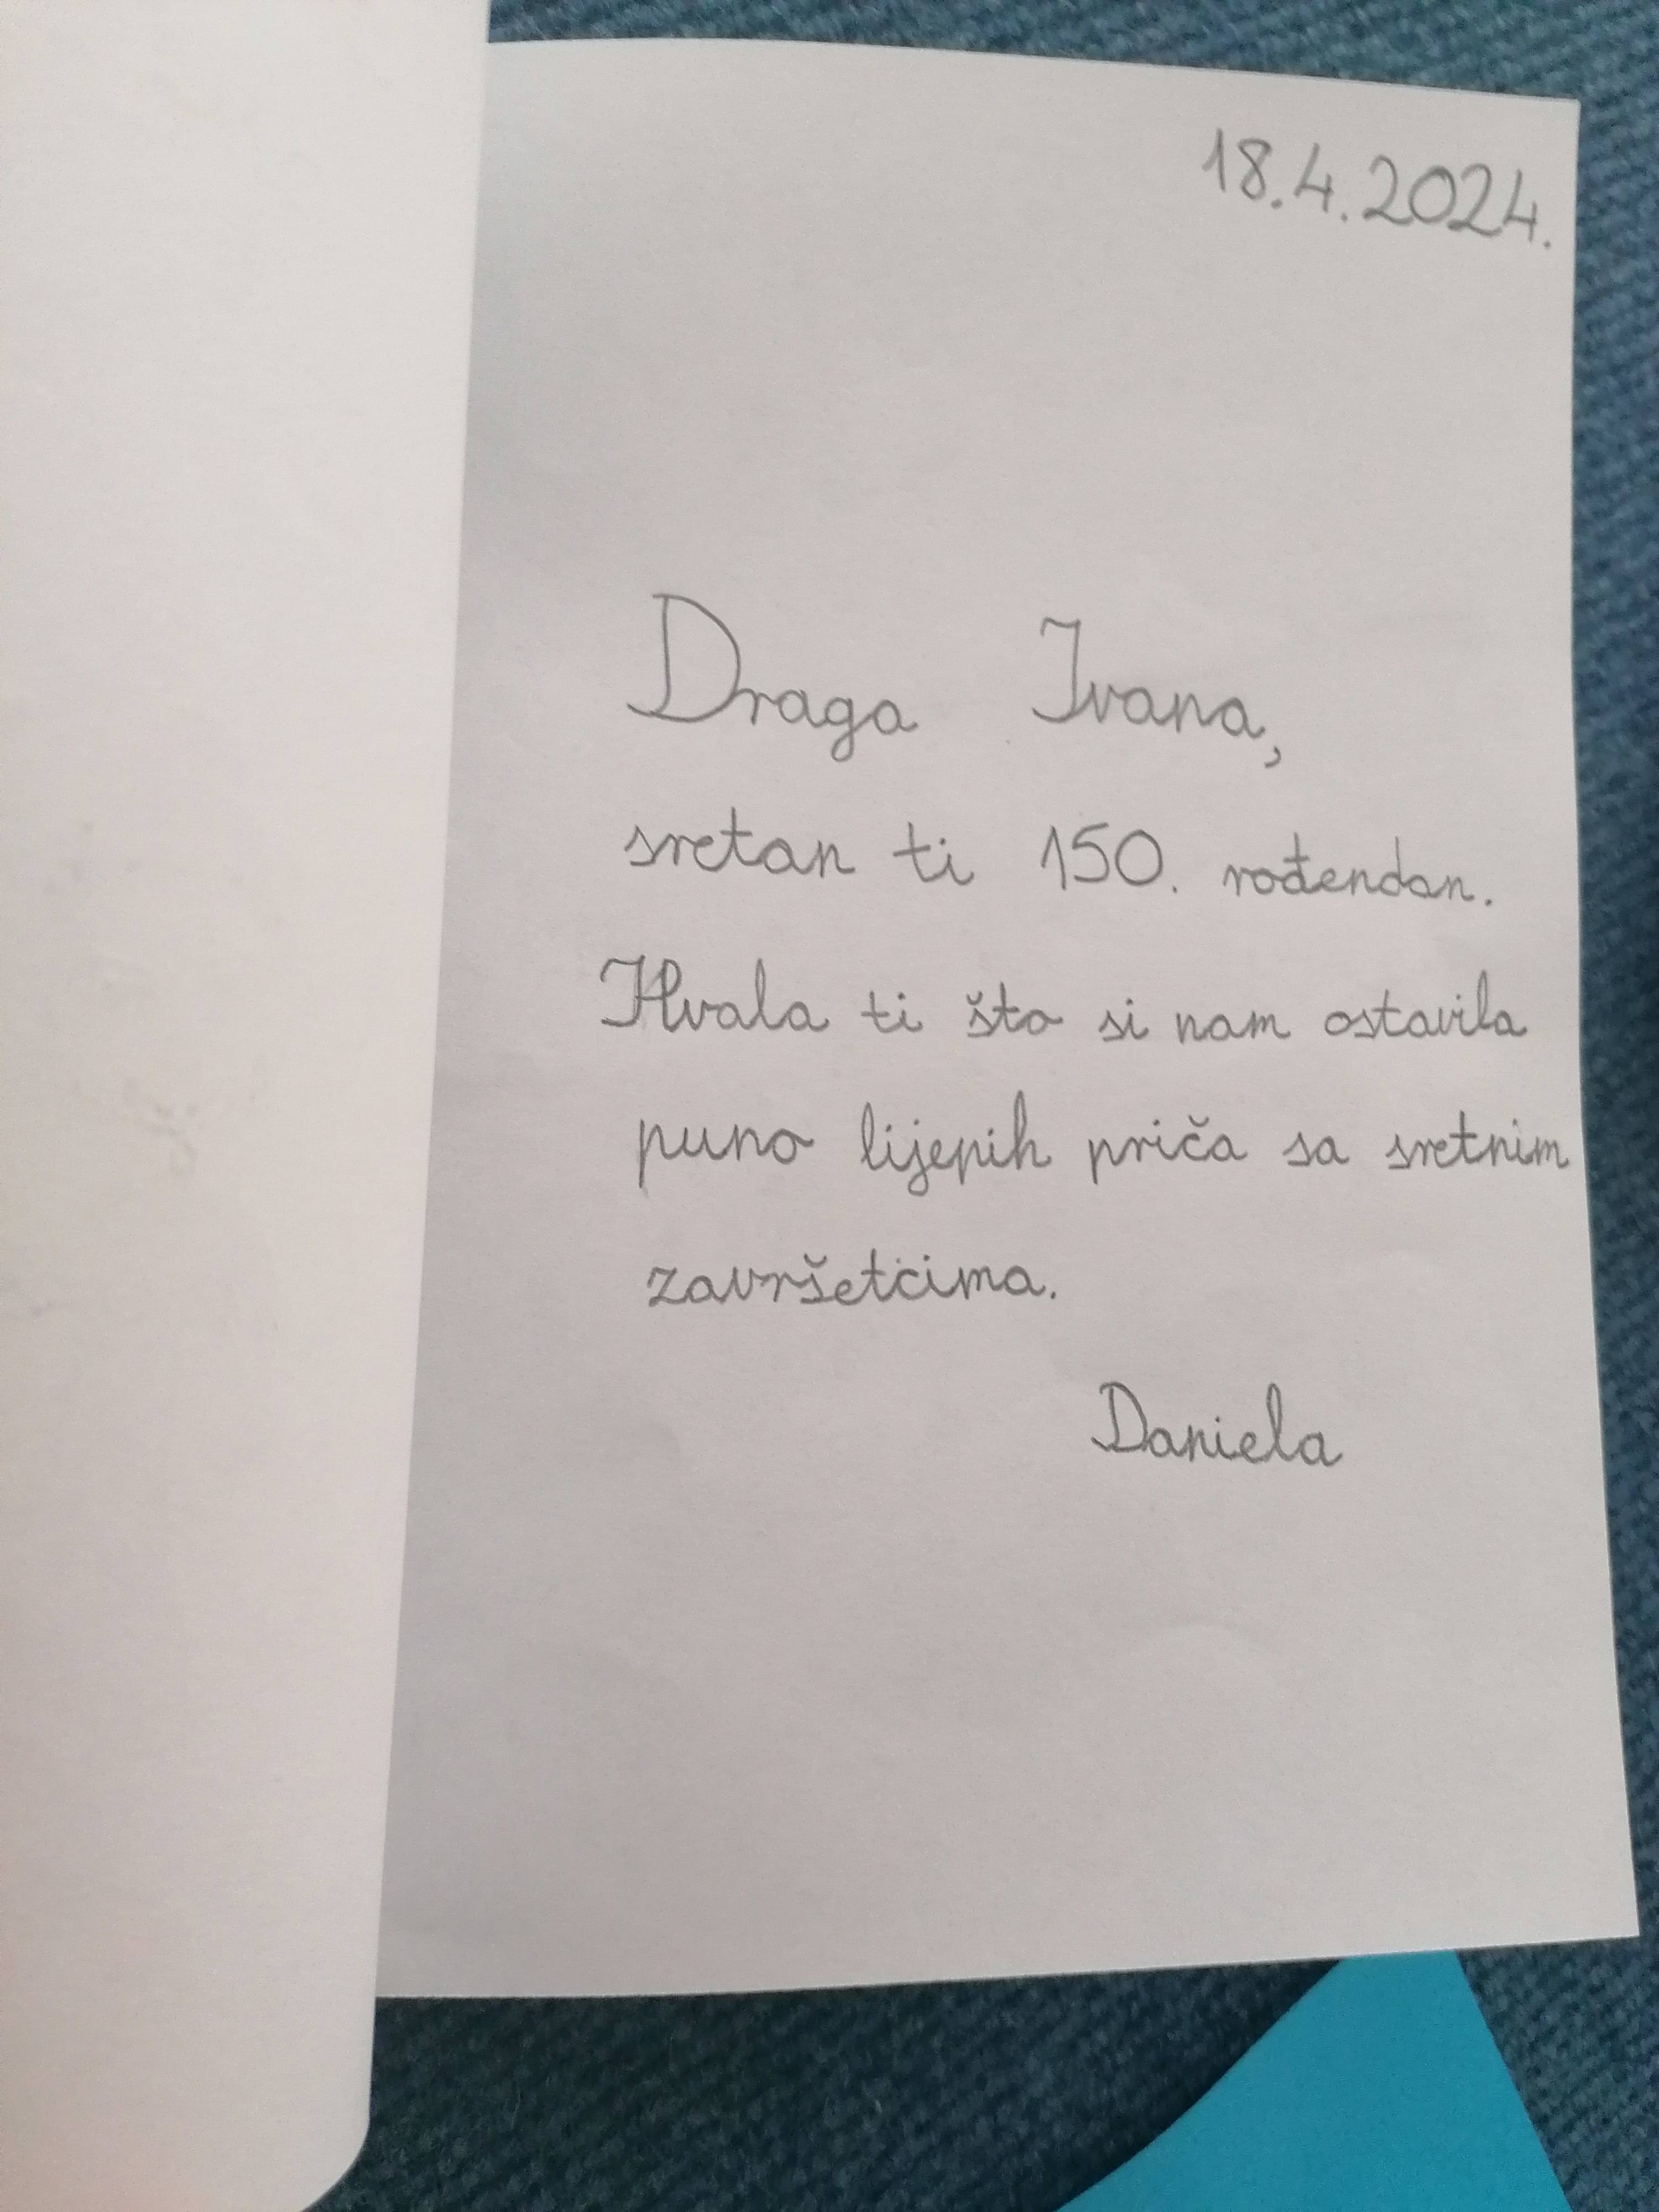 18.4.2024.
Draga Ivana,
sretan ti 150. rođendan.
Hvala ti što si nam ostavila
puno lijepih priča sa sretnim
završetcima.
Daniela